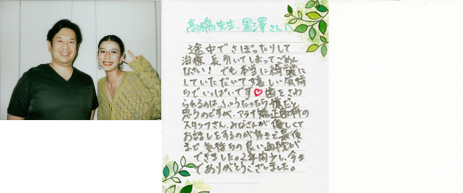 高橋先生、黒澤さんに
途中でさぼったりして
治療長引いてしまってごめん
なさい！でも本当に綺麗に
していただいて嬉しい気持
ちでいっぱいです♡歯をさわ
られるのはふつうだったら嫌だと
思うのですが、アラナ矯正歯科の
スタッフさん、みなさんが優しくて
お話しをするのが好きで最後
まで気持ちの良い歯科が
できました。2年間少し、今ま
でありがとうございました。